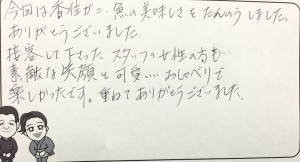 今回は香住ガニ、魚の美味しさをたんのうしました。
ありがとうございました。
接客して下さったスタッフの女性の方も
素敵な笑顔と可愛いいおしゃべりで
楽しかったです。重ねてありがとうございました。